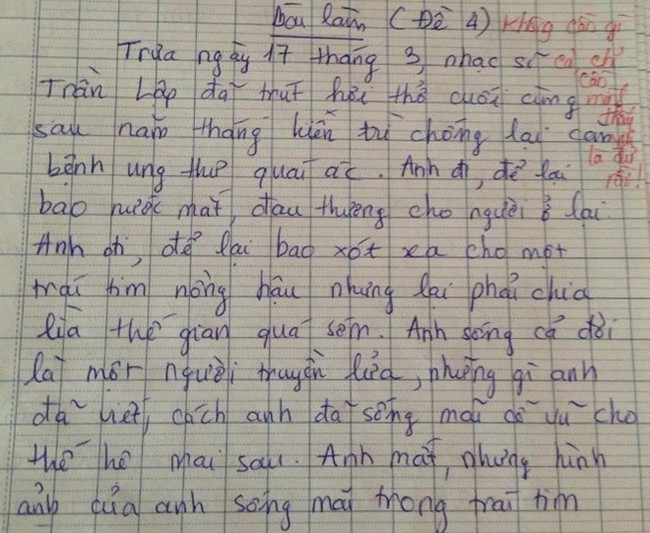 Bài làm (Đề 4) Không cần gì
Trưa ngày 17 tháng 3, nhạc sĩ cả chỉ
Trần Lập đã trút hơi thở cuối cùng cần mất
sau năm tháng kiên trì chống lại căn thấy
bệnh ung thư quái ác. Anh đi, để lại là đủ
bao nước mắt, đau thương cho người ở lại. rồi!
Anh đi, để lại bao xót xa cho một
trái tim nồng hậu nhưng lại phải chia
lìa thế gian quá sớm. Anh sống cả đời
là một người truyền lửa, những gì anh
đã viết, cách anh đã sống mãi cổ vũ cho
thế hệ mai sau. Anh mất, nhưng hình
ảnh của anh sống mãi trong trái tim